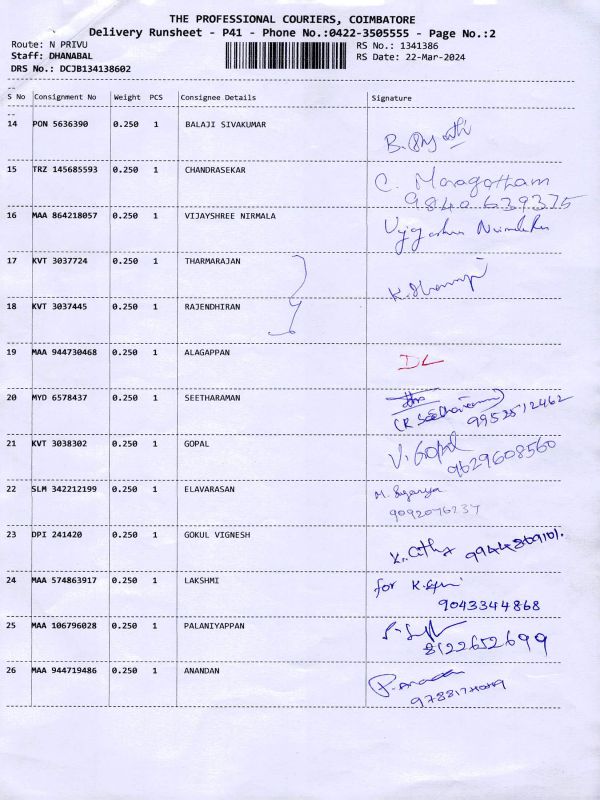 THE PROFESSIONAL COURIERS, COIMBATORE
Delivery Runsheet - P41 - Phone No.:0422-3505555 - Page No.:2
Route: N PRIVU
Staff: DHANABAL
DRS No.: DCJB134138602
RS No.: 1341386
RS Date: 22-Mar-2024
--
S No Consignment No Weight PCS Consignee Details Signature
--
14 PON 5636390 0.250 1 BALAJI SIVAKUMAR
15 TRZ 145685593 0.250 1 CHANDRASEKAR C. Maragatham
9840639375
16 MAA 864218057 0.250 1 VIJAYSHREE NIRMALA
17 KVT 3037724 0.250 1 THARMARAJAN
18 KVT 3037445 0.250 1 RAJENDHIRAN
19 MAA 944730468 0.250 1 ALAGAPPAN DL
20 MYD 6578437 0.250 1 SEETHARAMAN
(R Seetharaman)
21 KVT 3038302 0.250 1 GOPAL V. Gopal
9629608560
22 SLM 342212199 0.250 1 ELAVARASAN
9092076237
23 DPI 241420 0.250 1 GOKUL VIGNESH
24 MAA 574863917 0.250 1 LAKSHMI for
9043344868
25 MAA 106796028 0.250 1 PALANIYAPPAN
8122652699
26 MAA 944719486 0.250 1 ANANDAN